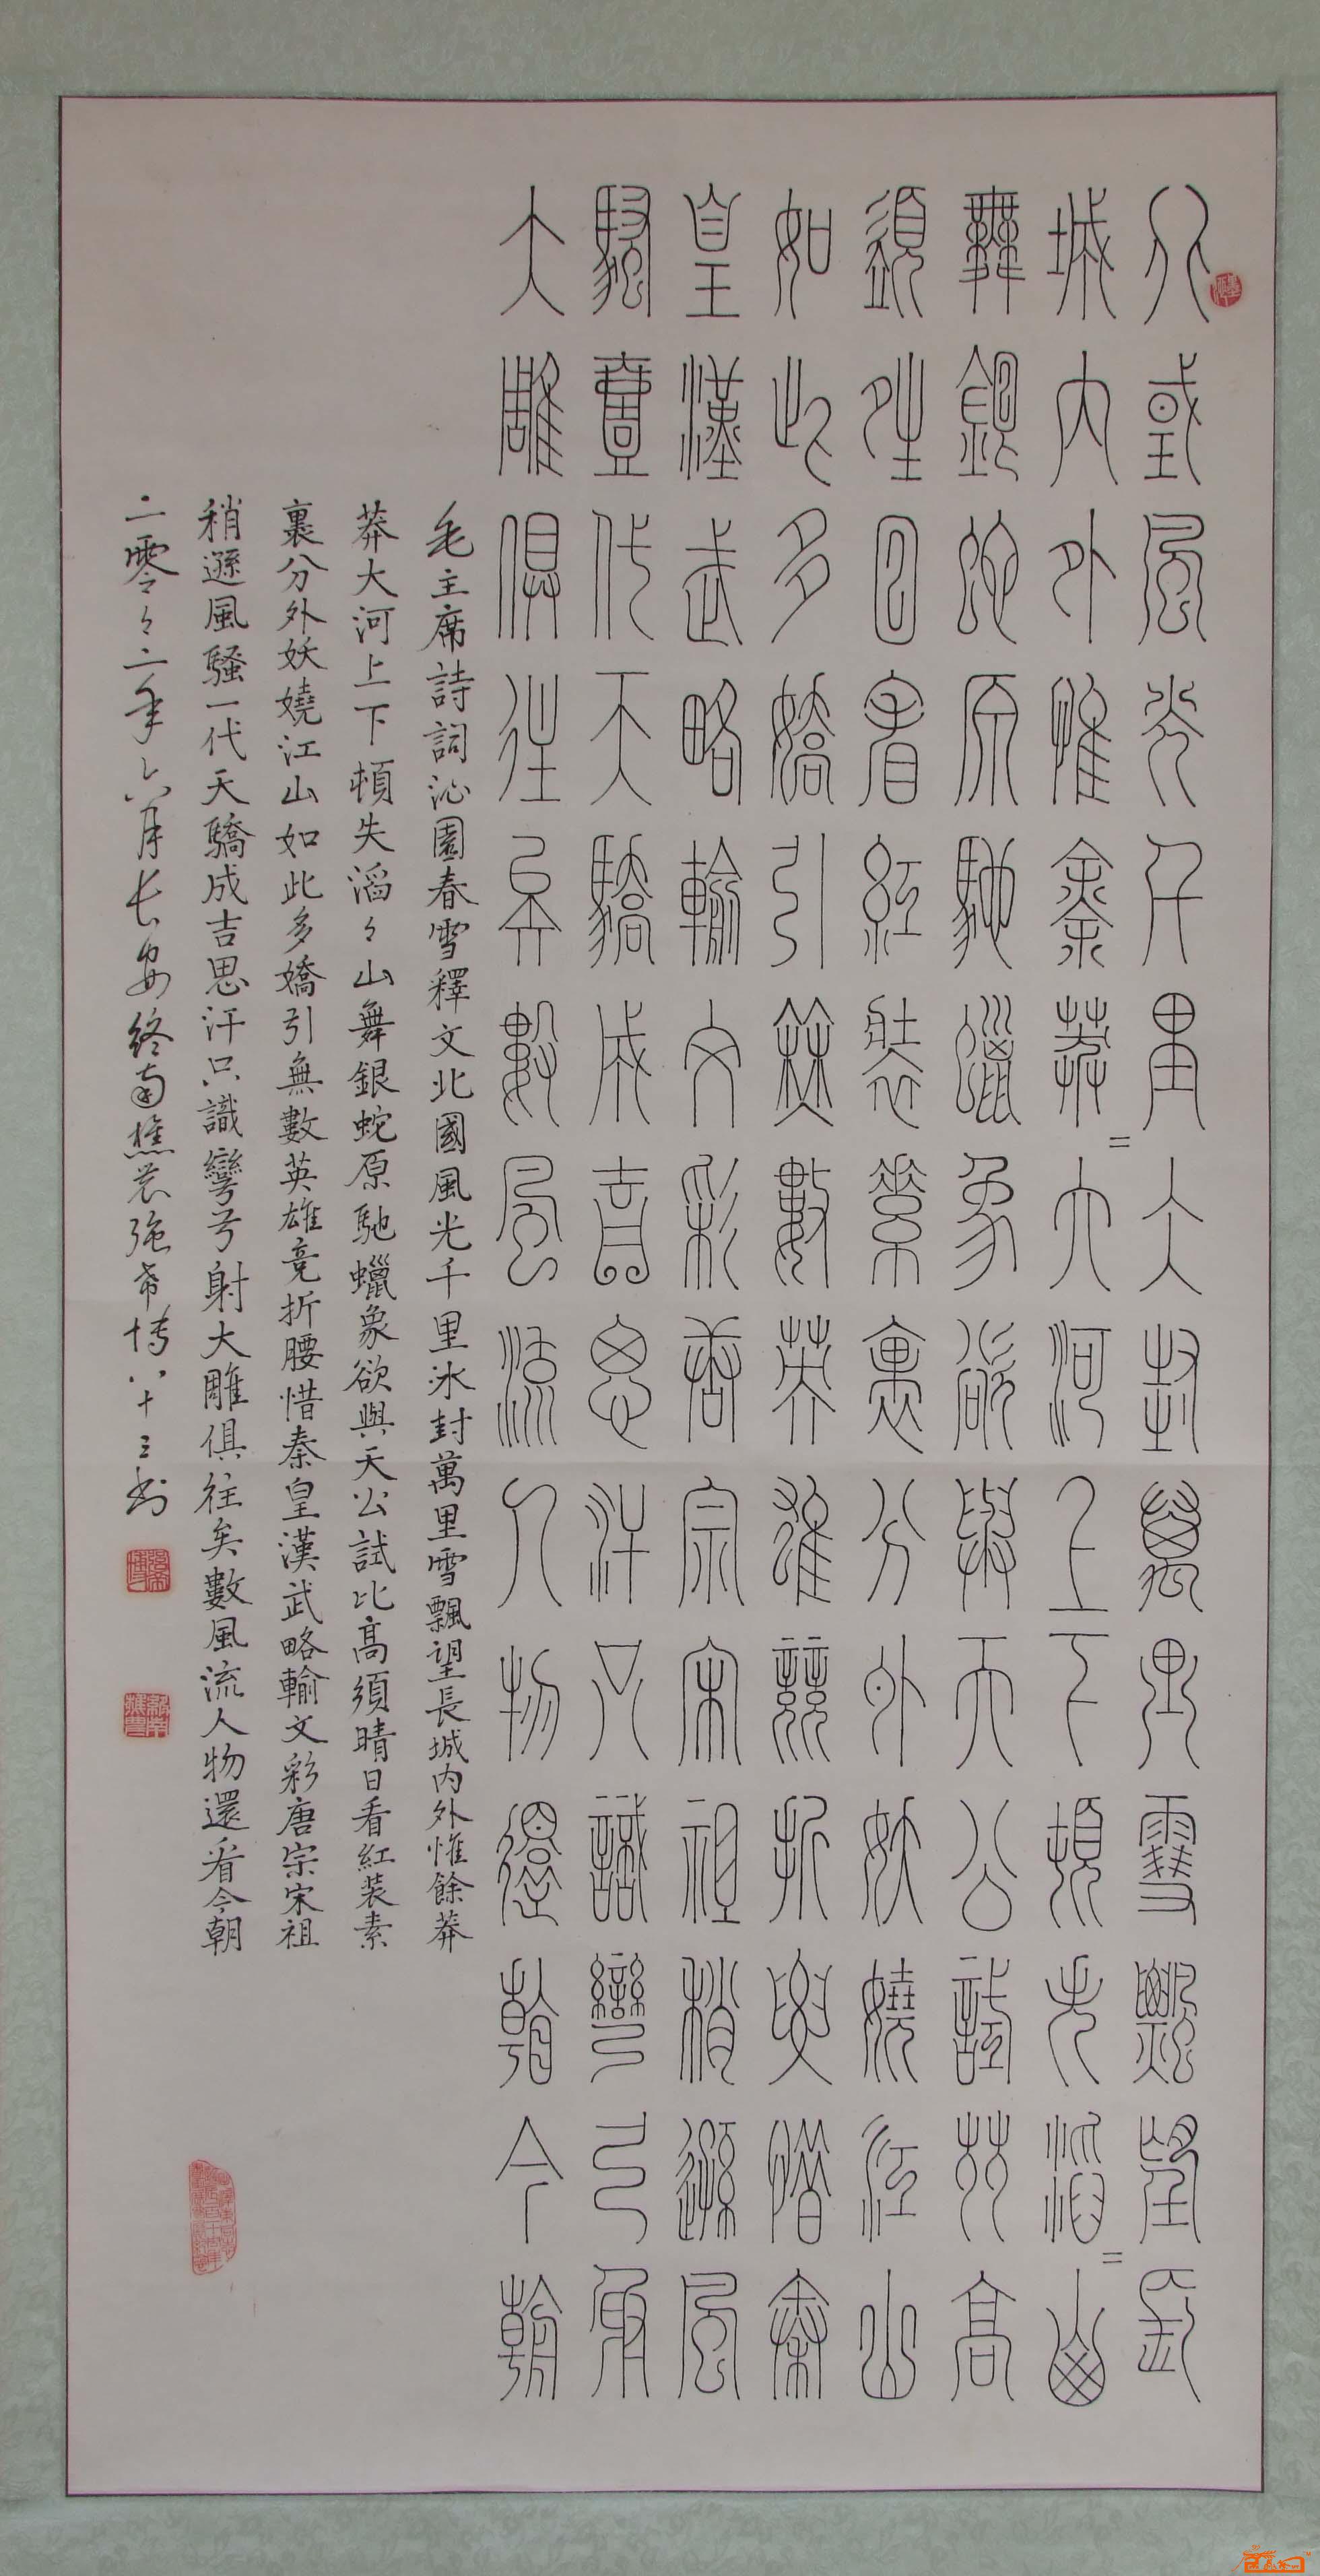 北國風光千里冰封萬里雪飄望長
城內外惟余莽=大河上下頓失滔=山
舞銀蛇原馳蠟象欲與天公試比高
須晴日看紅裝素裹分外妖嬈江山
如此多嬌引無數英雄競折腰惜秦
皇漢武略輸文彩唐宗宋祖稍遜風
騷壹代天驕成吉思汗只識彎弓射
大雕俱往矣數風流人物還看今朝
毛主席詩詞沁園春雪釋文北國風光千里冰封萬里雪飄望長城内外惟餘莽
莽大河上下頓失滔々山舞銀蛇原馳蠟象欲與天公試比高須晴日看紅装素
裹分外妖嬈江山如此多嬌引無數英雄竞折腰惜秦皇漢武略輸文彩唐宗宋祖
稍遜風騷一代天驕成吉思汗只識彎弓射大雕俱往矣數風流人物還看今朝
二零々二年六月长安終南樵农强希博八十三书
强希博
終南樵農